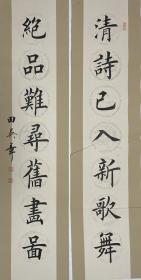 清詩已入新歌舞
絕品難尋舊畵圖
田英章